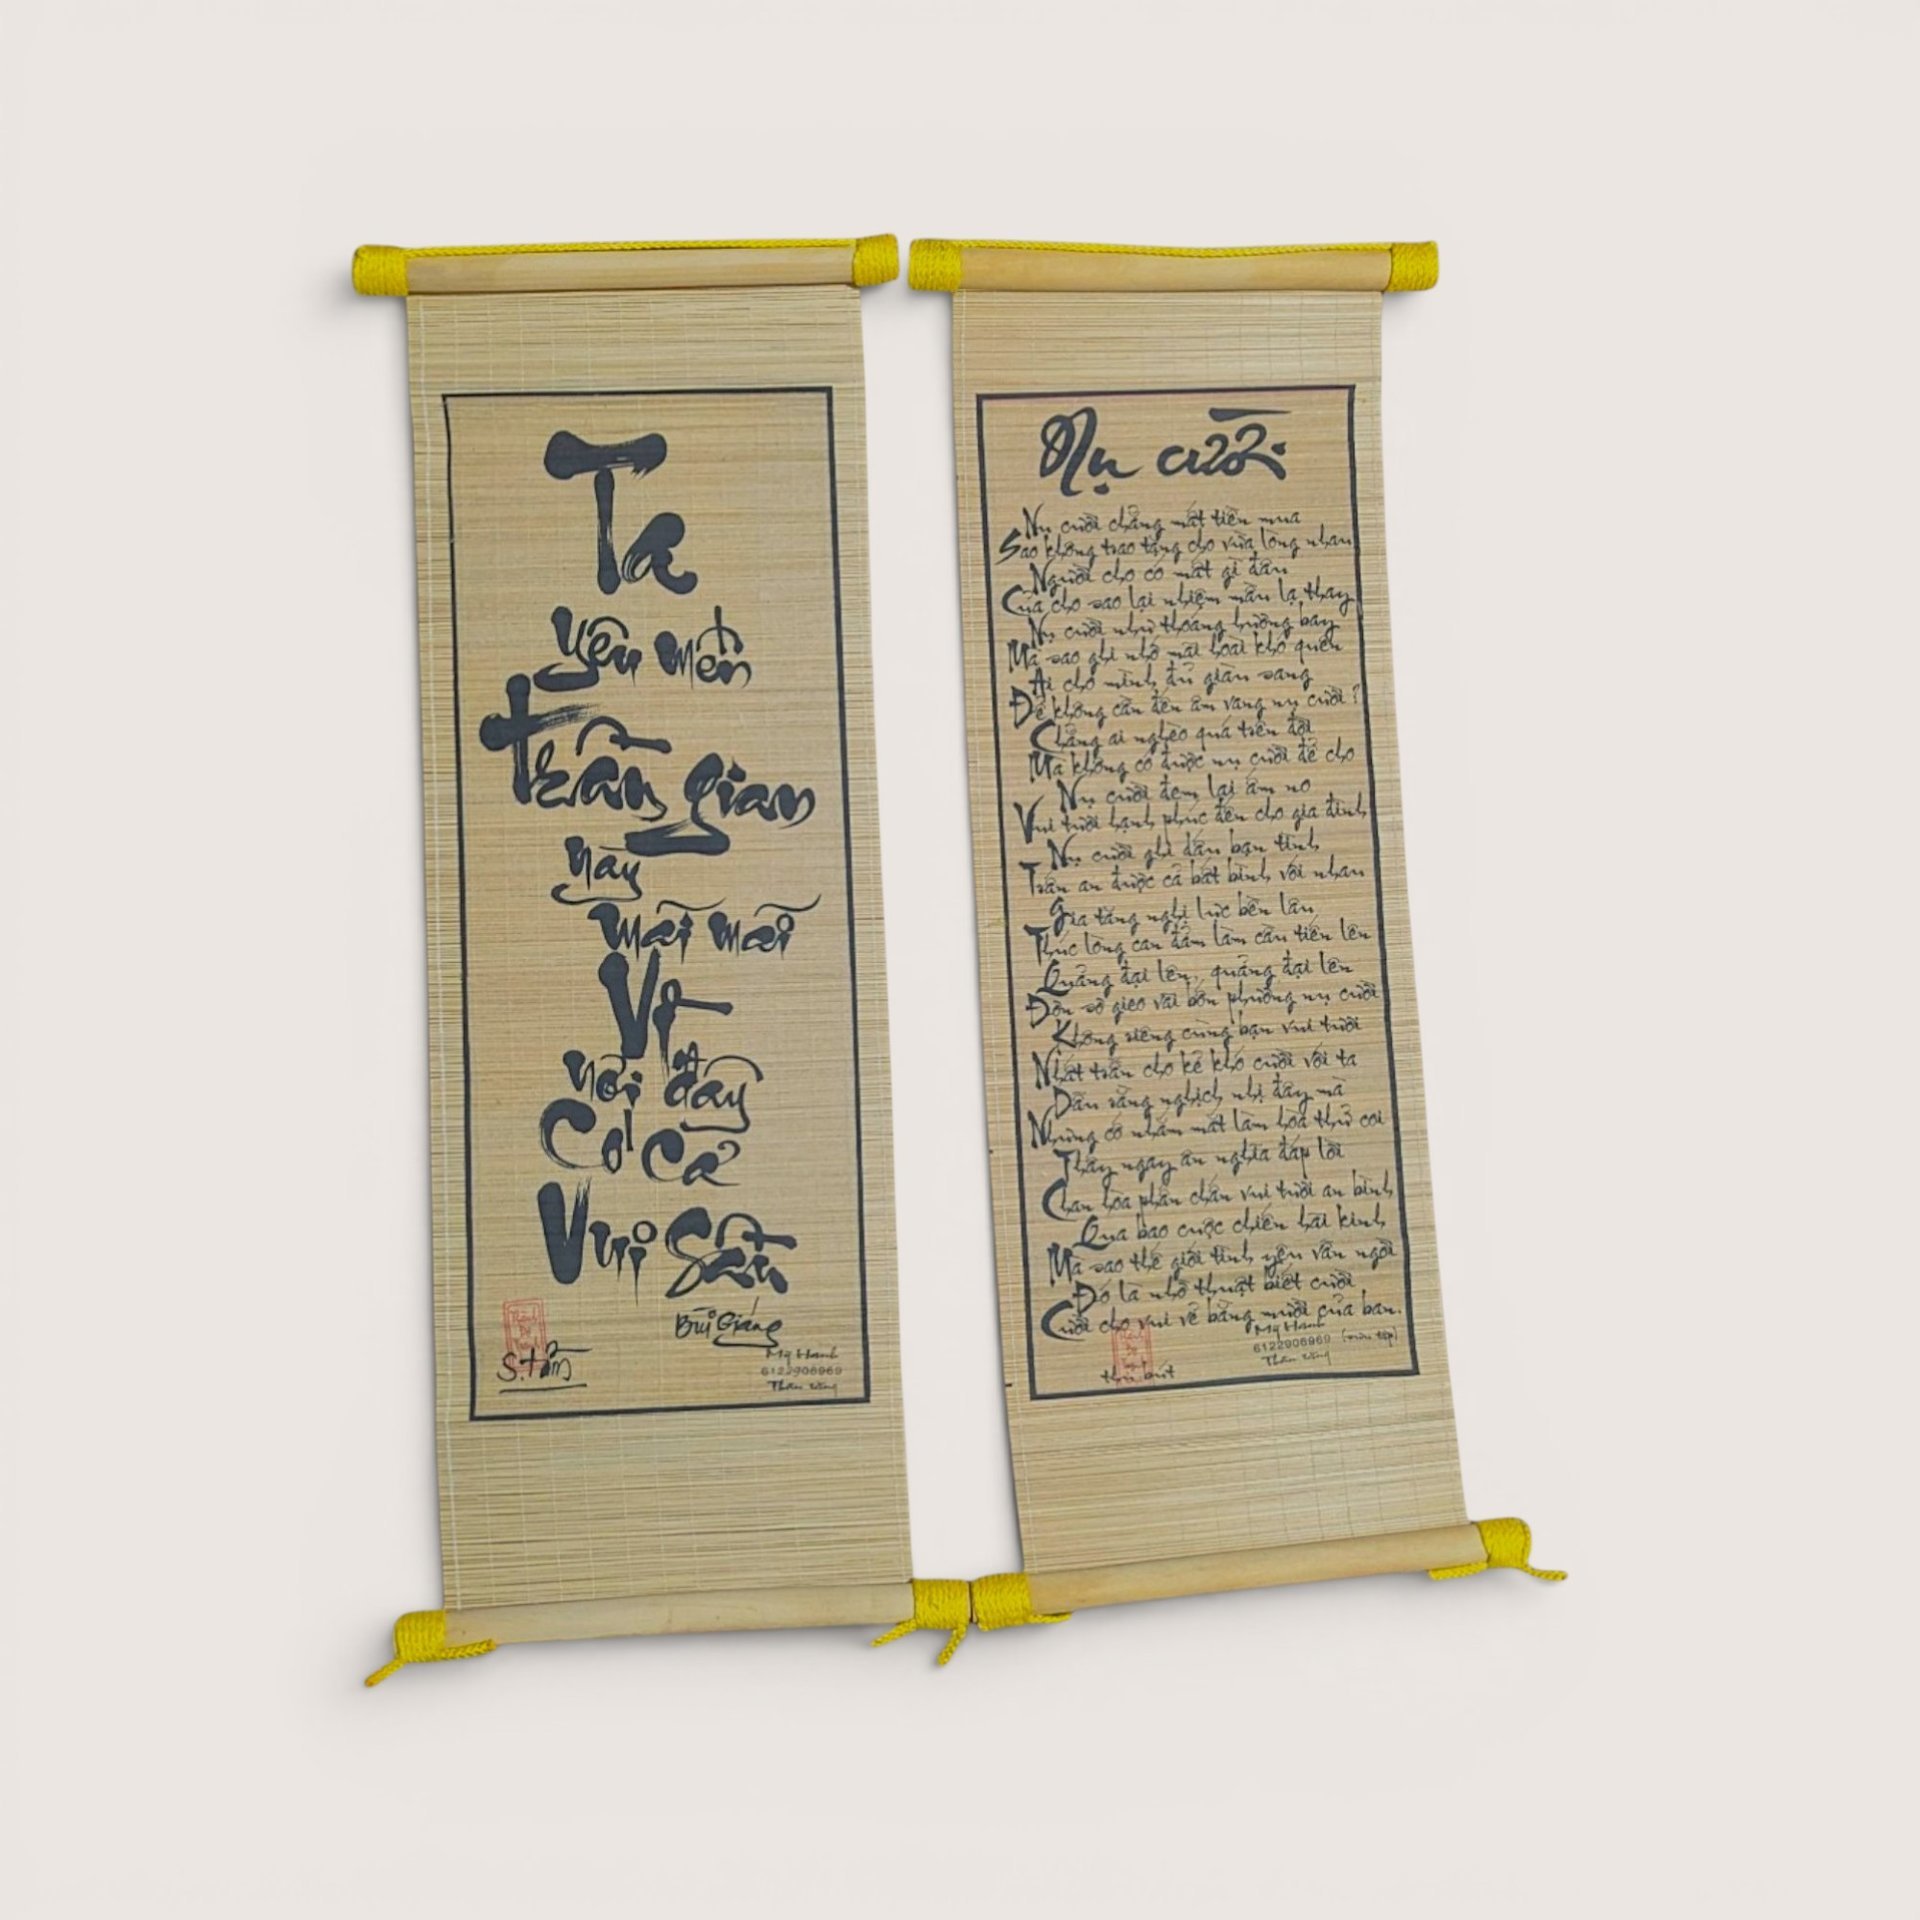 Ta
yêu mến
trần gian
này
mãi mãi
Vì
nơi đây
Có cả
Vui Sầu
Bùi Giáng
S.tâm
Mỹ Hạnh
6122906969
Nụ cười
Nụ cười chẳng mất tiền mua
Sao không trao tặng cho vừa lòng nhau
Người cho có mất gì đâu
Của cho sao lại nhiệm mầu lạ thay
Nụ cười như thoáng hương bay
Mà sao ghi nhớ mãi hoài khó quên
Ai cho mình đủ giàu sang
Để không cần đến âm vang nụ cười?
Chẳng ai nghèo quá trên đời
Mà không có được nụ cười để cho
Nụ cười đem lại ấm no
Vui tươi hạnh phúc đến cho gia đình
Nụ cười ghi dấu bạn tình
Trấn an được cả bất bình với nhau
Gia tăng nghị lực bền lâu
Thúc lòng can đảm làm cầu tiến lên
Quảng đại lên, quảng đại lên
Đơn sơ gieo vãi bốn phương nụ cười
Không riêng cùng bạn vui tươi
Nhất trần cho kẻ khó cười với ta
Dẫu rằng nghịch nhị đấy mà
Nhưng cố nhắm mắt làm hòa thử coi
Thấy ngay ân nghĩa đáp lời
Chan hòa phấn chấn vui tươi an bình
Qua bao cuộc chiến hãi kinh
Mà sao thế giới tình yêu vẫn ngời
Đó là nhờ thuật biết cười
Cười cho vui vẻ bằng mười của ban.
Mỹ Hạnh
6122906969 (sưu tập)
thủ bút